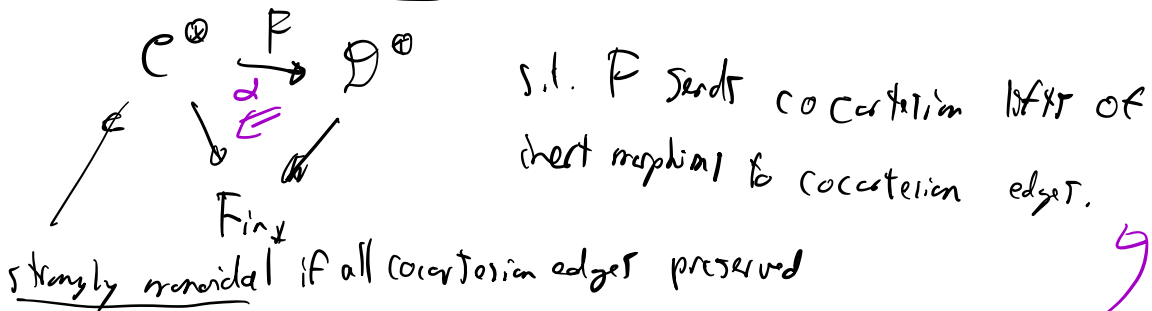 C^⊗ F→ D^⊗
α
s.t. F sends cocartesian lifts of
inert morphisms to cocartesian edges.
Fin_*
strongly monoidal if all cocartesian edges preserved